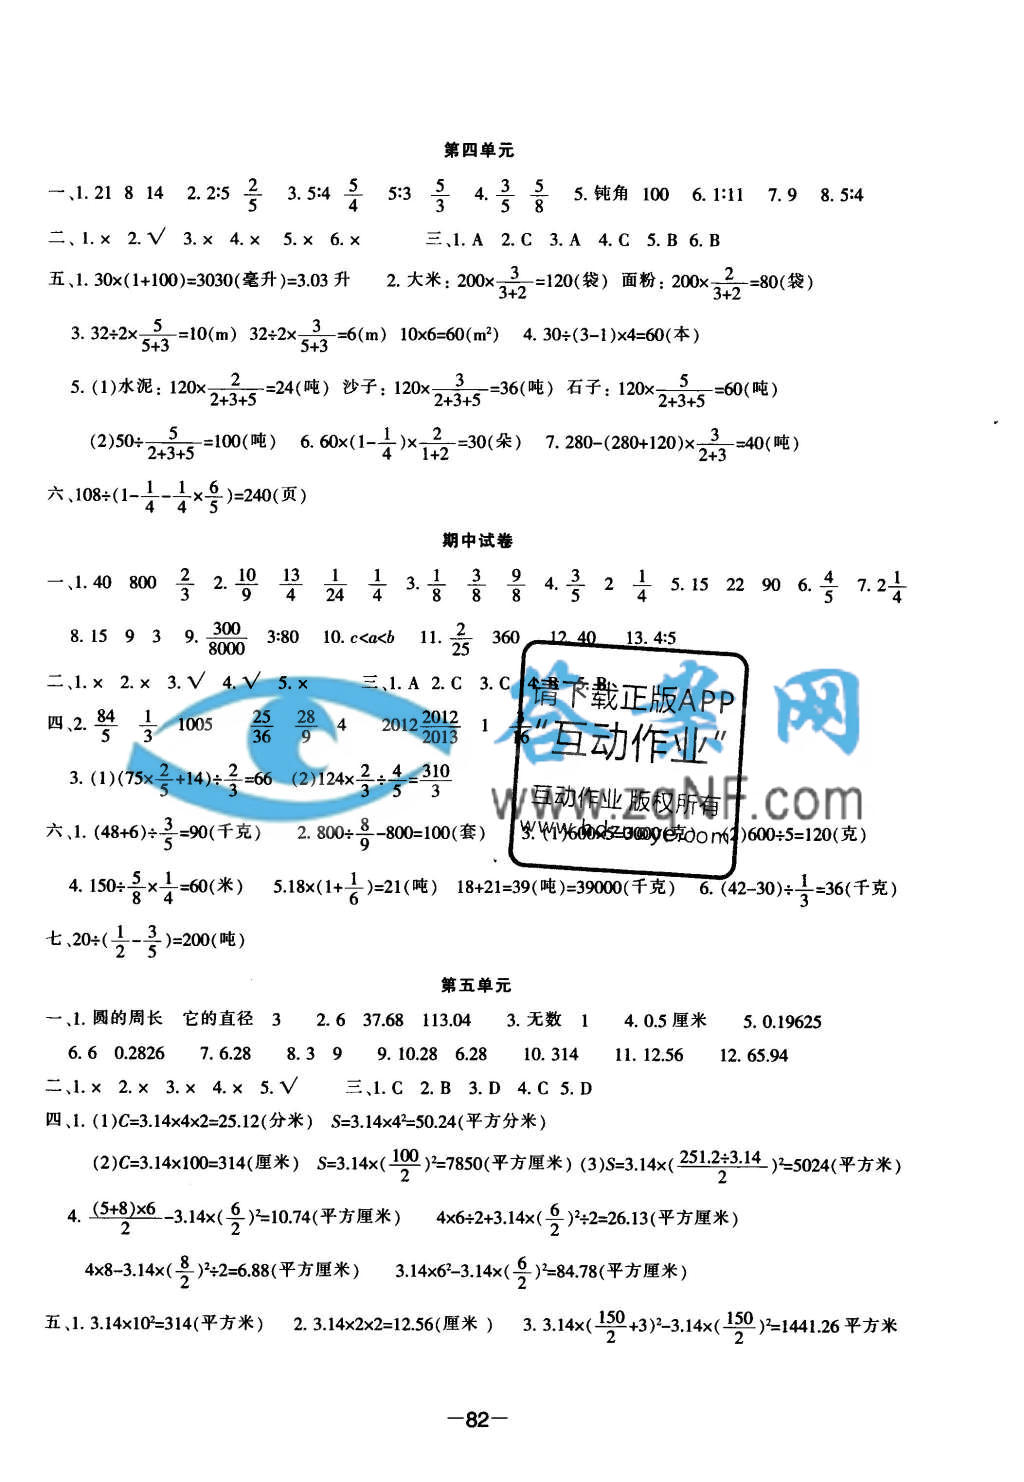 第四单元
一、1. 21 8 14 2. 2∶5 2/5 3. 5∶4 5/4 5∶3 5/3 4. 3/5 5/8 5. 钝角 100 6. 1∶11 7. 9 8. 5∶4
二、1. × 2. √ 3. × 4. × 5. × 6. × 三、1. A 2. C 3. A 4. C 5. B 6. B
五、1. 30×(1+100)=3030(毫升)=3.03 升 2. 大米：200×3/(3+2)=120(袋) 面粉：200×2/(3+2)=80(袋)
3. 32÷2×5/(5+3)=10(m) 32÷2×3/(5+3)=6(m) 10×6=60(m²) 4. 30÷(3-1)×4=60(本)
5. (1)水泥：120×2/(2+3+5)=24(吨) 沙子：120×3/(2+3+5)=36(吨) 石子：120×5/(2+3+5)=60(吨)
(2)50÷5/(2+3+5)=100(吨) 6. 60×(1-1/4)×2/(1+2)=30(朵) 7. 280-(280+120)×3/(2+3)=40(吨)
六、108÷(1-1/4-1/4×6/5)=240(页)
期中试卷
一、1. 40 800 2/3 2. 10/9 13/4 1/24 1/4 3. 1/8 3/8 9/8 4. 3/5 2 1/4 5. 15 22 90 6. 4/5 7. 2 1/4
8. 15 9 3 9. 300/8000 3∶80 10. c<a<b 11. 2/25 360 12. 40 13. 4∶5
二、1. × 2. × 3. √ 4. √ 5. × 三、1. A 2. C 3. C 4. B 5. B
四、2. 84/5 1/3 1005 25/36 28/9 4 2012 2012/2013 1 /16
3. (1)(75×2/5+14)÷2/3=66 (2)124×2/3÷4/5=310/3
六、1. (48+6)÷3/5=90(千克) 2. 800÷8/9-800=100(套) 3. (1)600×5=3000(克) (2)600÷5=120(克)
4. 150÷5/8×1/4=60(米) 5.18×(1+1/6)=21(吨) 18+21=39(吨)=39000(千克) 6. (42-30)÷1/3=36(千克)
七、20÷(1/2-3/5)=200(吨)
答案网
www.zqNF.com
请下载正版APP
“互动作业”
互动作业 版权所有
第五单元
一、1. 圆的周长 它的直径 3 2. 6 37.68 113.04 3. 无数 1 4. 0.5 厘米 5. 0.19625
6. 6 0.2826 7. 6.28 8. 3 9 9. 10.28 6.28 10. 314 11. 12.56 12. 65.94
二、1. × 2. × 3. × 4. × 5. √ 三、1. C 2. B 3. D 4. C 5. D
四、1. (1)C=3.14×4×2=25.12(分米) S=3.14×4²=50.24(平方分米)
(2)C=3.14×100=314(厘米) S=3.14×(100/2)²=7850(平方厘米) (3)S=3.14×(251.2÷3.14/2)²=5024(平方米)
4. (5+8)×6/2-3.14×(6/2)²=10.74(平方厘米) 4×6÷2+3.14×(6/2)²÷2=26.13(平方厘米)
4×8-3.14×(8/2)²÷2=6.88(平方厘米) 3.14×6²-3.14×(6/2)²=84.78(平方厘米)
五、1. 3.14×10²=314(平方米) 2. 3.14×2×2=12.56(厘米 ) 3. 3.14×(150/2+3)²-3.14×(150/2)²=1441.26 平方米
—82—